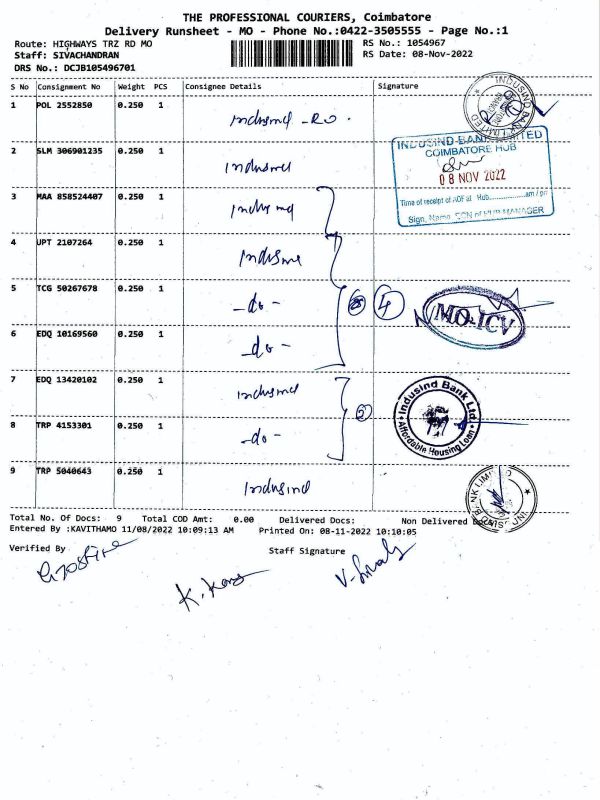 THE PROFESSIONAL COURIERS, Coimbatore
Delivery Runsheet - MO - Phone No.:0422-3505555 - Page No.:1
Route: HIGHWAYS TRZ RD MO RS No.: 1054967
Staff: SIVACHANDRAN RS Date: 08-Nov-2022
DRS No.: DCJB105496701
S No Consignment No Weight PCS Consignee Details Signature
1 POL 2552850 0.250 1 Indusind - RO.
INDUSIND BANK LIMITED
INDUSIND BANK LIMITED
COIMBATORE HUB
2 SLM 306901235 0.250 1 Indusind
08 NOV 2022
3 MAA 858524407 0.250 1 Indusind
Time of receipt of AOF at Hub am / pm
Sign, Name, ECN of HUB MANAGER
4 UPT 2107264 0.250 1 Indusind
5 TCG 50267678 0.250 1 -do- 4
MO-ICV
6 EDQ 10169560 0.250 1 -do-
7 EDQ 13420102 0.250 1 Indusind 2
Indusind Bank Ltd
Affordable Housing Loan
8 TRP 4153301 0.250 1 -do-
9 TRP 5040643 0.250 1 Indusind
Total No. Of Docs: 9 Total COD Amt: 0.00 Delivered Docs: Non Delivered Docs:
Entered By :KAVITHAMO 11/08/2022 10:09:13 AM Printed On: 08-11-2022 10:10:05
Verified By Staff Signature